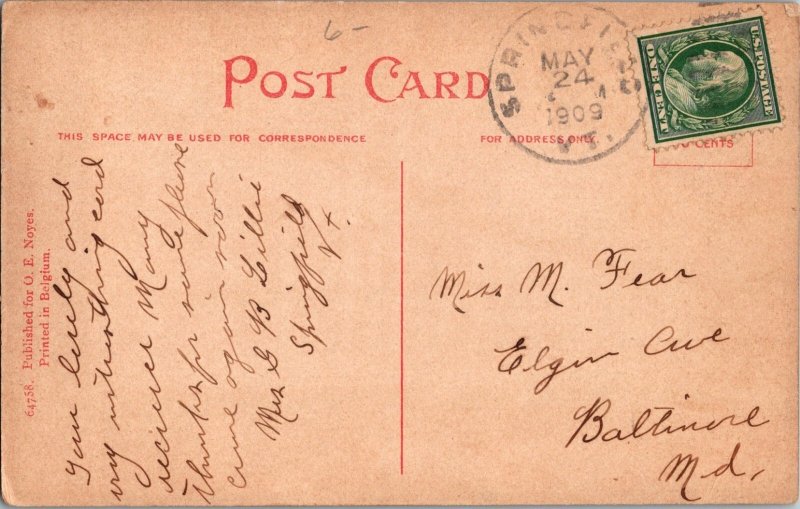 6-
POST CARD
THIS SPACE MAY BE USED FOR CORRESPONDENCE
FOR ADDRESS ONLY.
SPRINGFIELD
MAY
24
1909
VT.
U.S. POSTAGE
ONE CENT
CENTS
64758. Published for O. E. Noyes.
Printed in Belgium.
Your lovely and
very interesting card
receive Many
thanks for same please
come again soon
Mrs G B Lillie
Springfield
Vt.
Miss M. Fear
Elgin Ave
Baltimore
Md.